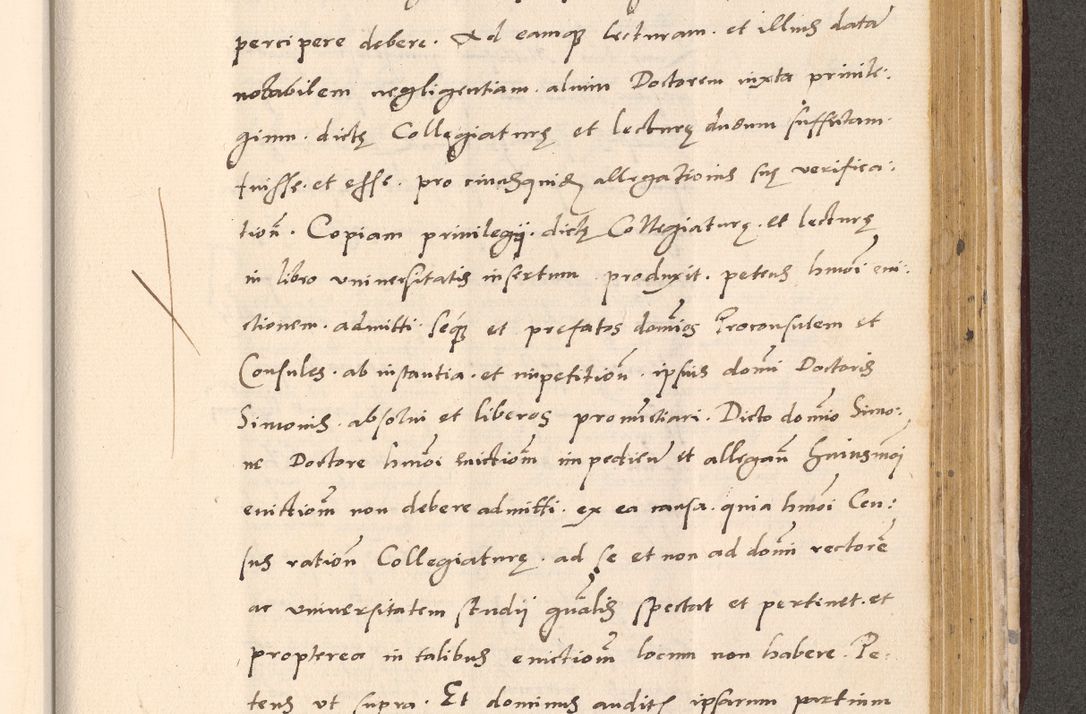 percipere debere. Ad eamq3 lecturam. et illius data
notabilem negligentiam. alium Doctorem iuxta priuile:
gium. dictę Collegiaturę et lecturę dudum suffectam
fuisse. et esse. pro cuiusquid3 allegationis suę verifica:
tion̄. Copiam priuilegij. dictę Collegiaturę. et lecturę
in libro vniuersitatis insertum produxit. petens hmōi eui:
ctionem. admitti seq3 et prefatos domīos Proconsulem et
Consules. ab instantia. et impetition̄. ipsius domī Doctoris
Simonis. absolui et liberos pronūctiari. Dicto domīo Simo:
ne Doctore hmōi euictiōm impedien̄ et allegan̄ huiusmōi
euictiōm non debere admitti. ex ea causa. quia hmōi Cen:
sus ration̄ Collegiaturę. ad se et non ad domī rectorē
ac vniuersitatem studij gnālis spectat et pertinet. et
propterea in talibus euictiōm locum non habere. Pe:
tens vt supra. Et dominus auditis ipsarum partium